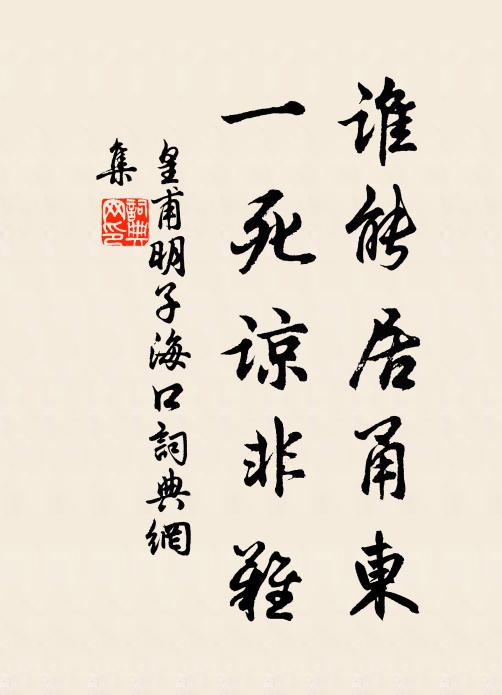 誰能居甬東
一死諒非難
皇甫明子海口詞典網
集
詞典
网印